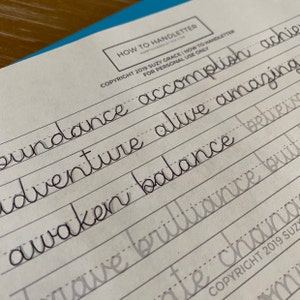 HOW TO HANDLETTER
COPYRIGHT 2019 SUZY GRACE | HOW TO HANDLETTER
FOR PERSONAL USE ONLY
bundance accomplish achie
adventure alive amazing
awaken balance believe
brave brilliance bu
ate change
COPYRIGHT 2019 SUZY